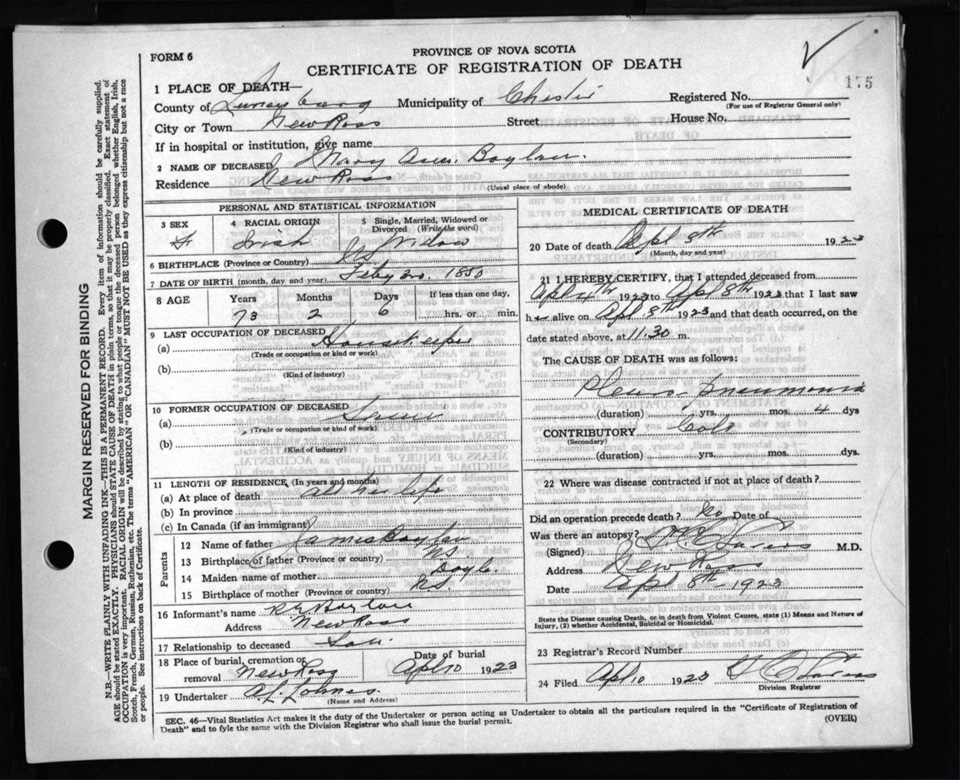 FORM 6
PROVINCE OF NOVA SCOTIA
CERTIFICATE OF REGISTRATION OF DEATH
175
1 PLACE OF DEATH—
County of Lunenburg Municipality of Chester Registered No.
(For use of Registrar General only)
City or Town New Ross Street House No.
If in hospital or institution, give name
2 NAME OF DECEASED Mary Ann Boylan.
Residence New Ross
(Usual place of abode)
PERSONAL AND STATISTICAL INFORMATION
3 SEX F
4 RACIAL ORIGIN Irish
5 Single, Married, Widowed or Divorced (Write the word) Widow
6 BIRTHPLACE (Province or Country) NS
7 DATE OF BIRTH (month, day and year) Feby 20. 1850
8 AGE Years 73 Months 2 Days 6 If less than one day, hrs. or min.
9 LAST OCCUPATION OF DECEASED
(a) Housekeeper
(Trade or occupation or kind of work)
(b)
(Kind of industry)
10 FORMER OCCUPATION OF DECEASED
(a)
(Trade or occupation or kind of work)
(b)
(Kind of industry)
11 LENGTH OF RESIDENCE, (In years and months)
(a) At place of death all her life
(b) In province
(c) In Canada (if an immigrant)
Parents
12 Name of father James Boylan
13 Birthplace of father (Province or country) NS
14 Maiden name of mother Doyle.
15 Birthplace of mother (Province or country) N.S.
16 Informant's name Boylan
Address New Ross
17 Relationship to deceased Son.
18 Place of burial, cremation or removal New Ross Date of burial Apl 10 1923
19 Undertaker
(Name and Address)
MEDICAL CERTIFICATE OF DEATH
20 Date of death Apl 8th 1923
(Month, day and year)
21 I HEREBY CERTIFY, that I attended deceased from
Apl 4th 1923 to Apl 8th 1923 that I last saw
her alive on Apl 8th 1923 and that death occurred, on the
date stated above, at 11.30 m.
The CAUSE OF DEATH was as follows:
Pleuro Pneumonia
(duration) yrs. mos. 4 dys
CONTRIBUTORY Cold
(Secondary)
(duration) yrs. mos. dys.
22 Where was disease contracted if not at place of death?
Did an operation precede death? No Date of
Was there an autopsy?
(Signed) M.D.
Address New Ross
Date Apl 8th 1923
State the Disease causing Death, or in death from Violent Causes, state (1) Means and Nature of
Injury, (2) whether Accidental, Suicidal or Homicidal.
23 Registrar's Record Number
24 Filed Apl 10 1923
Division Registrar
SEC. 46—Vital Statistics Act makes it the duty of the Undertaker or person acting as Undertaker to obtain all the particulars required in the "Certificate of Registration of
Death" and to fyle the same with the Division Registrar who shall issue the burial permit.
(OVER)
MARGIN RESERVED FOR BINDING
N.B.—WRITE PLAINLY WITH UNFADING INK—THIS IS A PERMANENT RECORD. Every item of information should be carefully supplied.
AGE should be stated EXACTLY. PHYSICIANS should STATE CAUSE OF DEATH in plain terms, so that it may be properly classified. Exact statement of
OCCUPATION is very important. RACIAL ORIGIN will be described by stating to what people or tongue the deceased person belonged whether English, Irish,
Scotch, French, German, Russian, Ruthenian, etc. The terms "AMERICAN" or "CANADIAN" MUST NOT BE USED as they express citizenship but not a race
or people. See instructions on back of Certificate.